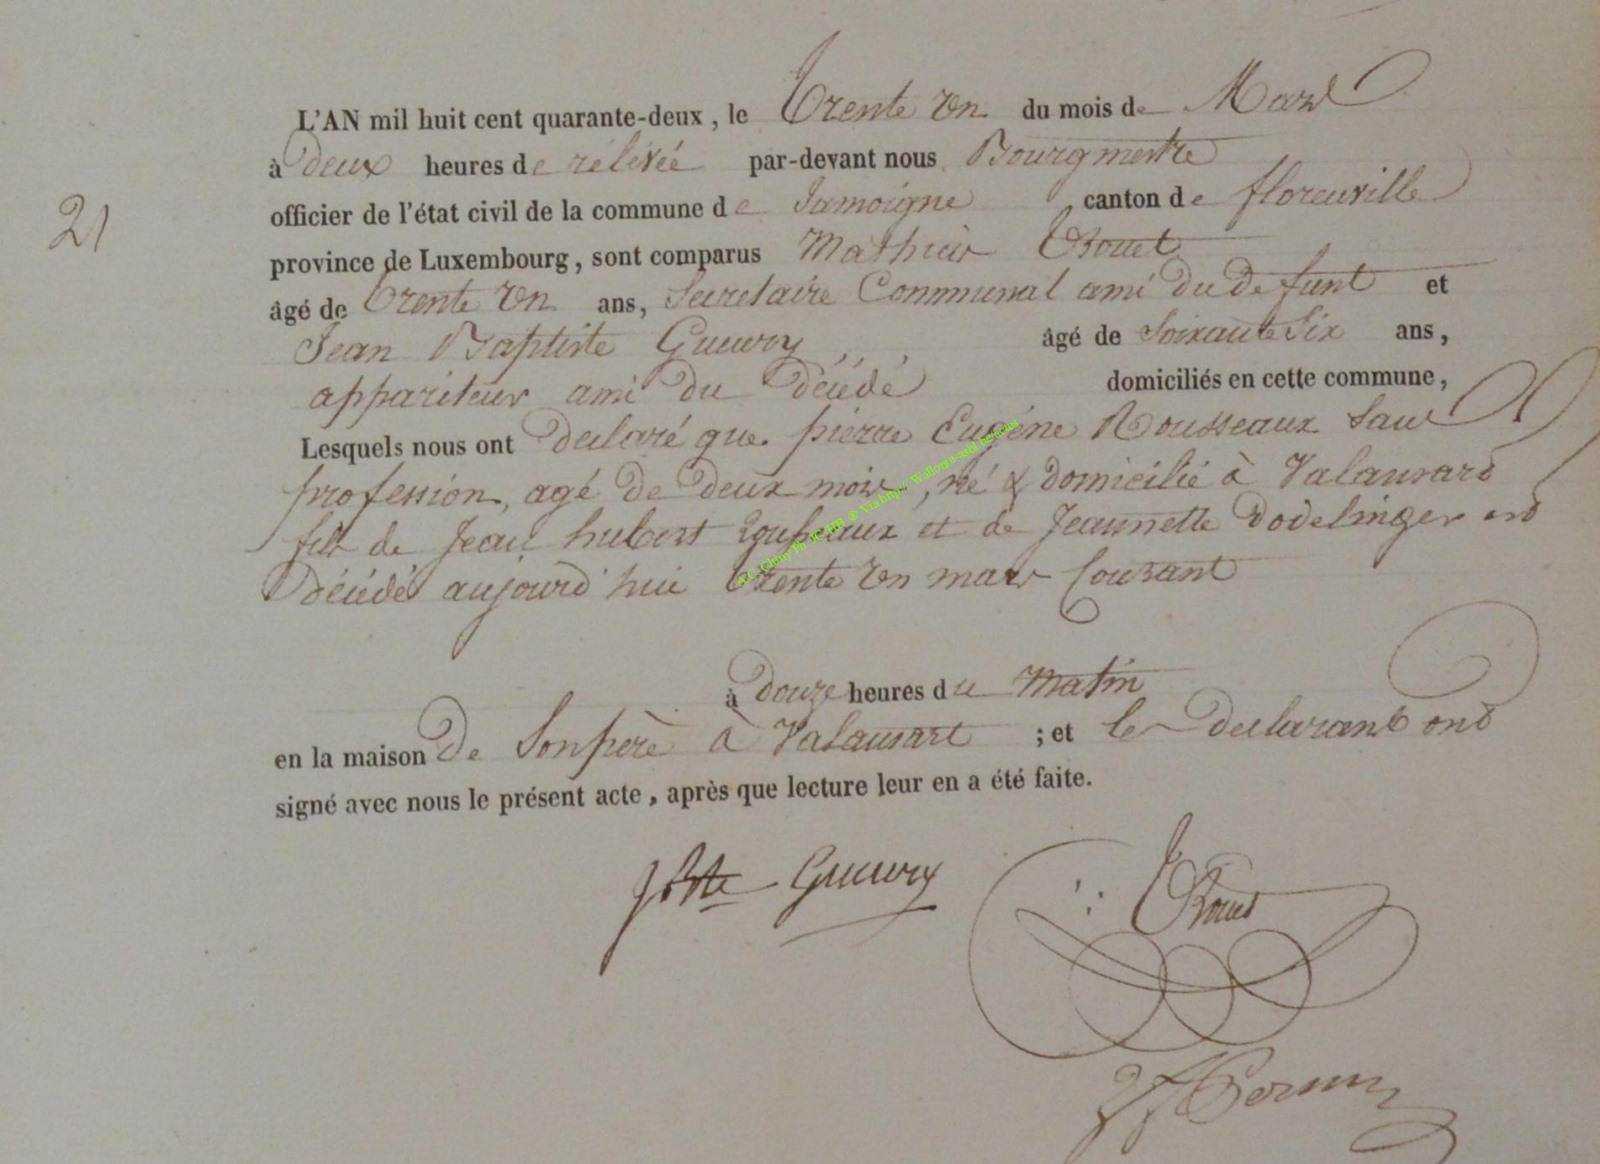 L'AN mil huit cent quarante-deux, le Trente Un du mois de Mars
à deux heures de rélévée par-devant nous Bourgmestre
officier de l'état civil de la commune de Jamoigne canton de florenville
21
province de Luxembourg, sont comparus Mathieu
âgé de trente Un ans, Secretaire Communal ami du defunt et
Jean Baptiste Gueury âgé de Soixante Six ans,
appariteur ami du décédé domiciliés en cette commune,
Lesquels nous ont declaré que pierre Eugène Rousseaux Sans
profession, agé de deux mois, né & domicilié à Valansard
fils de Jean hubert et de Jeannette Dodelinger est
Décédé aujourd'hui trente Un mars Courant
à douze heures du Matin
en la maison de Son père à Valansart ; et les declarant ont
signé avec nous le présent acte, après que lecture leur en a été faite.
JBte Gueury